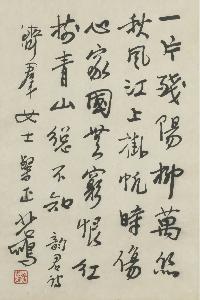 一片残陽柳萬絲
秋風江上掛帆時傷
心家國無窮恨紅
樹青山總不知
韵君詩
濟群女士繫正 悲鴻